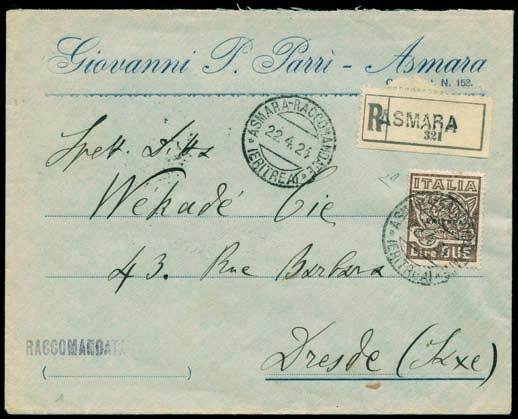 Giovanni P. Parrì - Asmara
N. 153.
R ASMARA
321
ASMARA-RACCOMANDATE
22.4.24
(ERITREA)
Spett. Ditta
Wekadé Cie
ITALIA
ASMARA
(ERITREA)
LIRE
43. Rue Barbara
RACCOMANDATA
Dresde (Sxe)